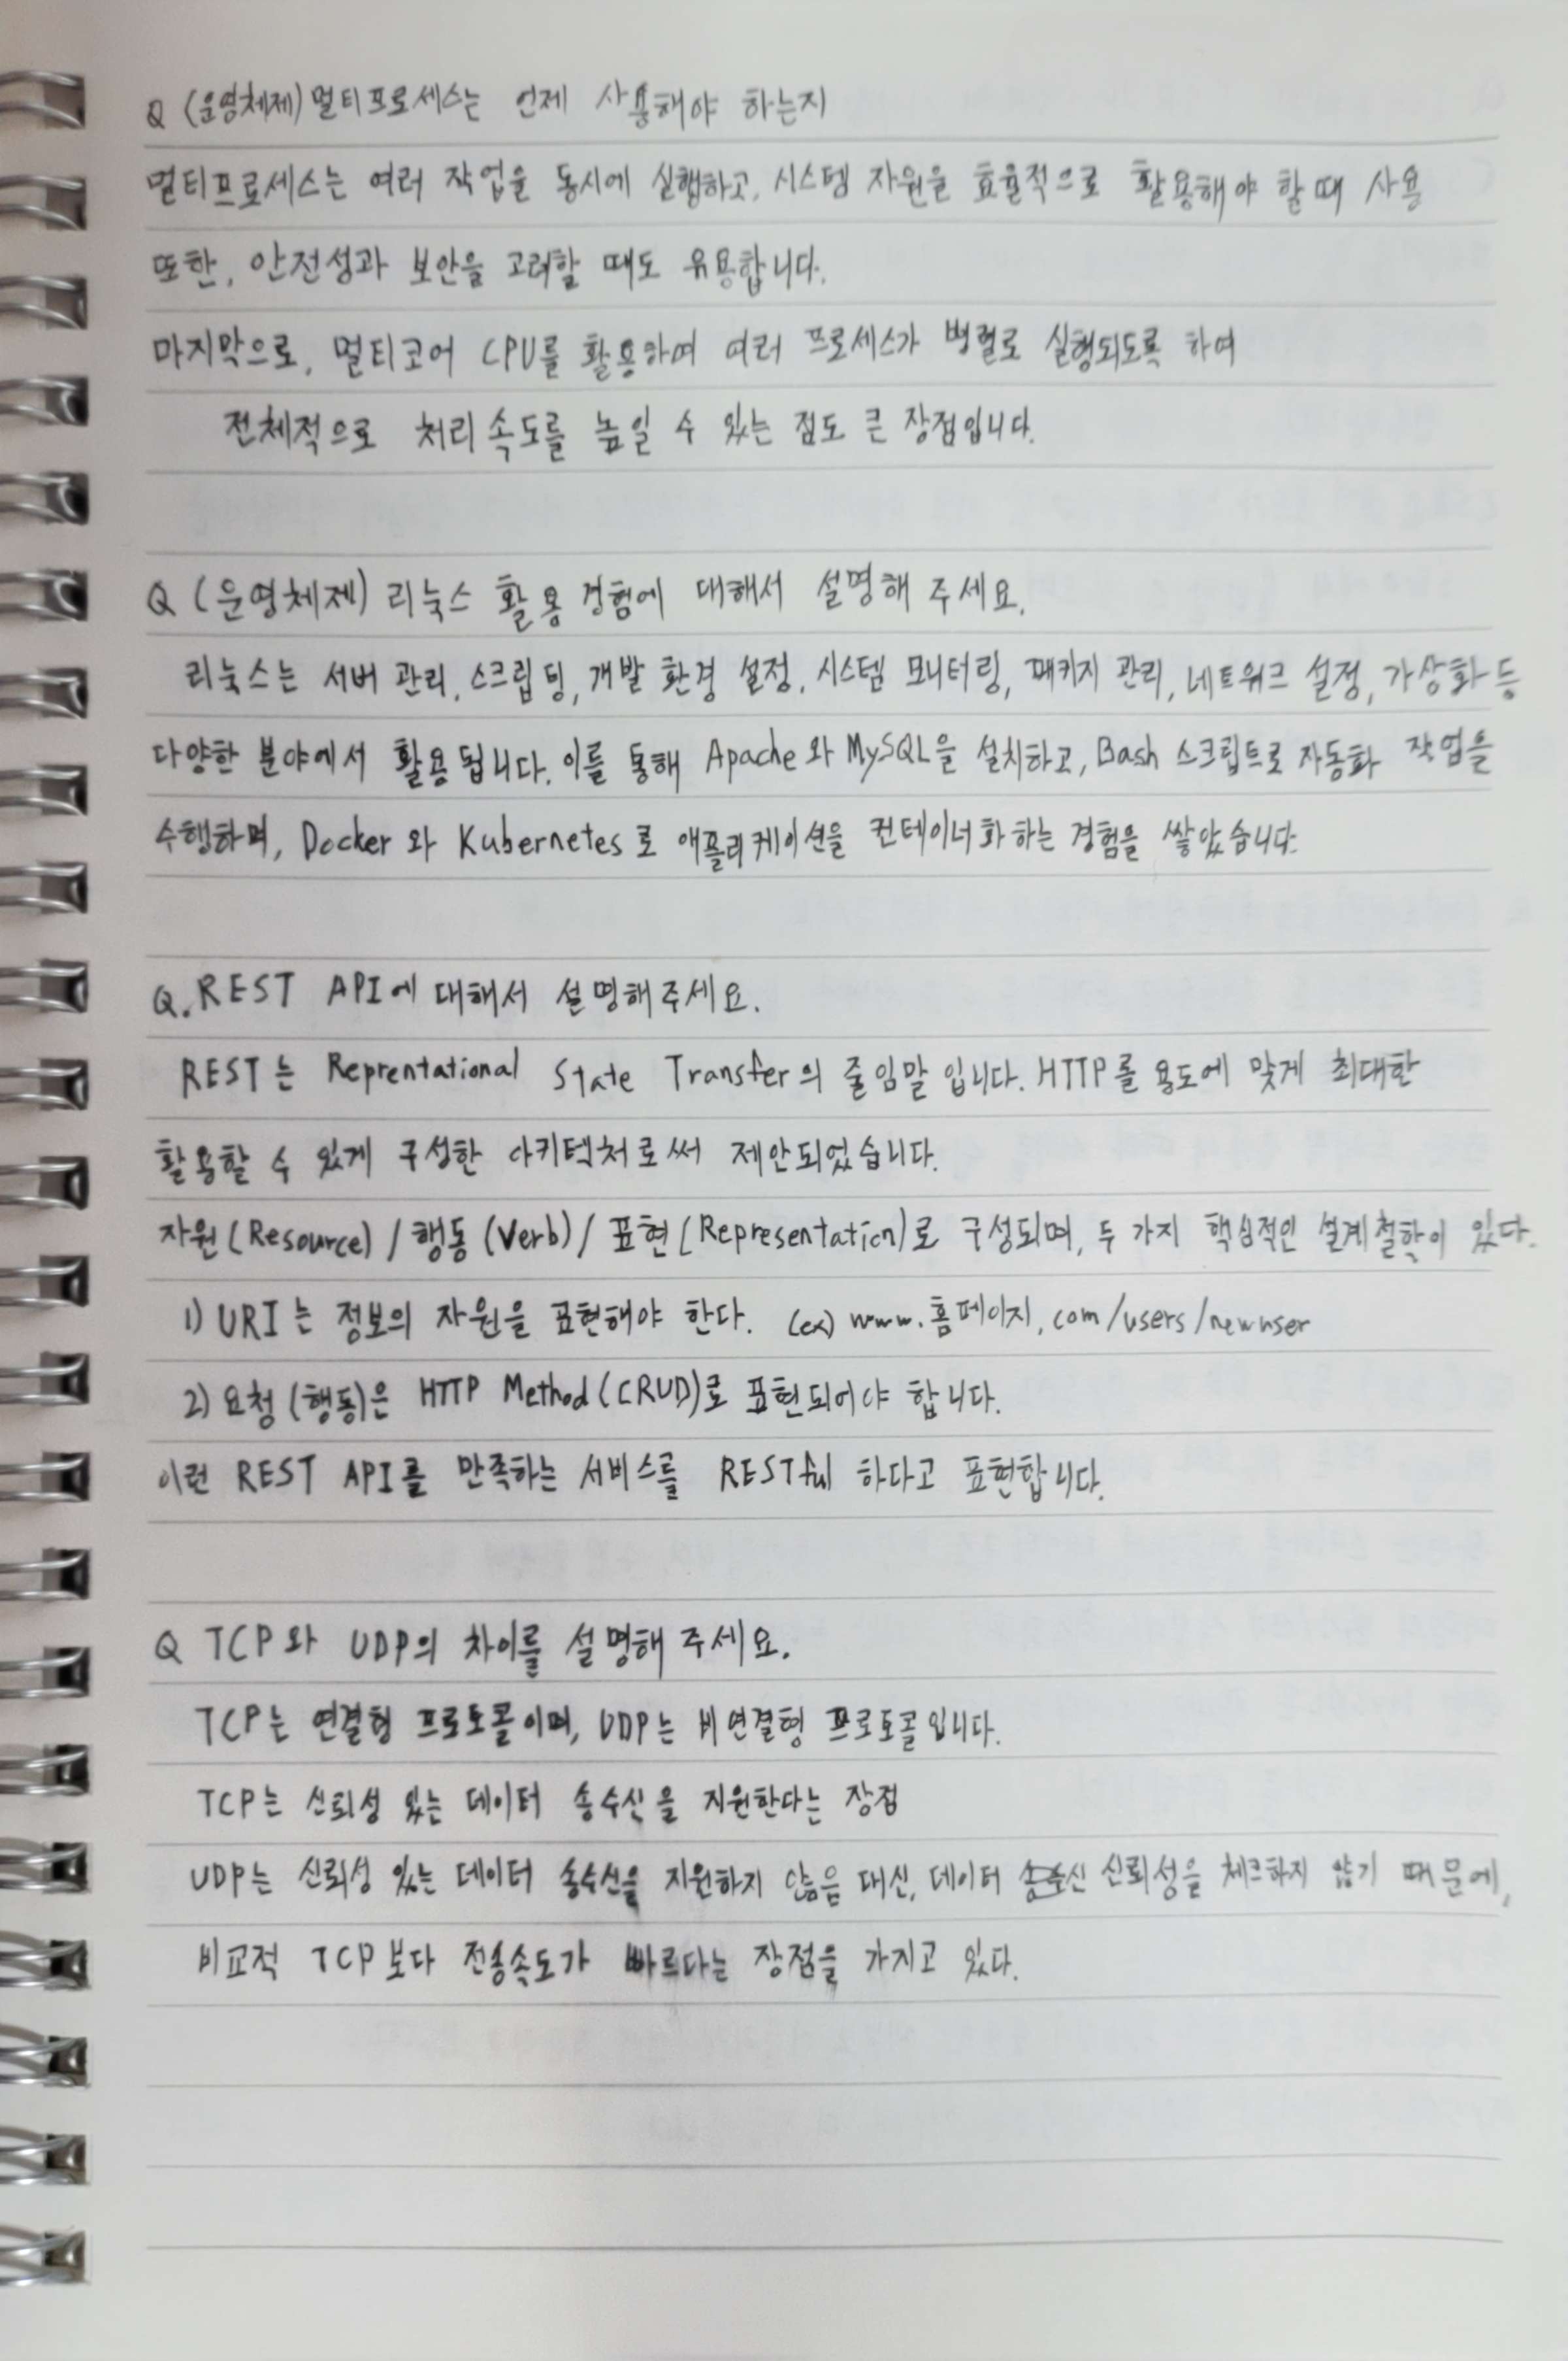 Q (운영체제) 멀티프로세스는 언제 사용해야 하는지
멀티프로세스는 여러 작업을 동시에 실행하고, 시스템 자원을 효율적으로 활용해야 할 때 사용
또한, 안전성과 보안을 고려할 때도 유용합니다.
마지막으로, 멀티코어 CPU를 활용하여 여러 프로세스가 병렬로 실행되도록 하여
전체적으로 처리 속도를 높일 수 있는 점도 큰 장점입니다.
Q (운영체제) 리눅스 활용 경험에 대해서 설명해 주세요.
리눅스는 서버 관리, 스크립팅, 개발 환경 설정, 시스템 모니터링, 패키지 관리, 네트워크 설정, 가상화 등
다양한 분야에서 활용됩니다. 이를 통해 Apache와 MySQL을 설치하고, Bash 스크립트로 자동화 작업을
수행하며, Docker와 Kubernetes로 애플리케이션을 컨테이너화하는 경험을 쌓았습니다.
Q. REST API에 대해서 설명해주세요.
REST는 Reprentational State Transfer의 줄임말 입니다. HTTP를 용도에 맞게 최대한
활용할 수 있게 구성한 아키텍처로써 제안되었습니다.
자원(Resource) / 행동(Verb) / 표현(Representation)로 구성되며, 두 가지 핵심적인 설계철학이 있다.
1) URI는 정보의 자원을 표현해야 한다. (ex) www.홈페이지.com/users/newuser
2) 요청(행동)은 HTTP Method(CRUD)로 표현되어야 합니다.
이런 REST API를 만족하는 서비스를 RESTful 하다고 표현합니다.
Q TCP와 UDP의 차이를 설명해 주세요.
TCP는 연결형 프로토콜이며, UDP는 비연결형 프로토콜입니다.
TCP는 신뢰성 있는 데이터 송수신을 지원한다는 장점
UDP는 신뢰성 있는 데이터 송수신을 지원하지 않음 대신, 데이터 송수신 신뢰성을 체크하지 않기 때문에,
비교적 TCP보다 전송속도가 빠르다는 장점을 가지고 있다.